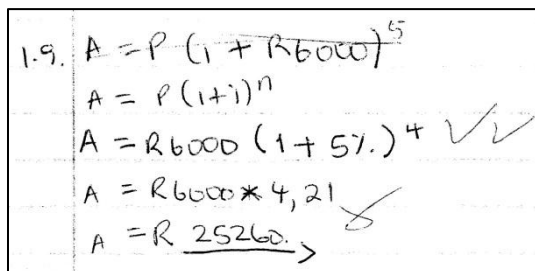 1.9. A = P (1 + R6000)^5
A = P(1+i)^n
A = R6000 (1 + 5%.)^4
A = R6000 * 4,21
A = R 25260.